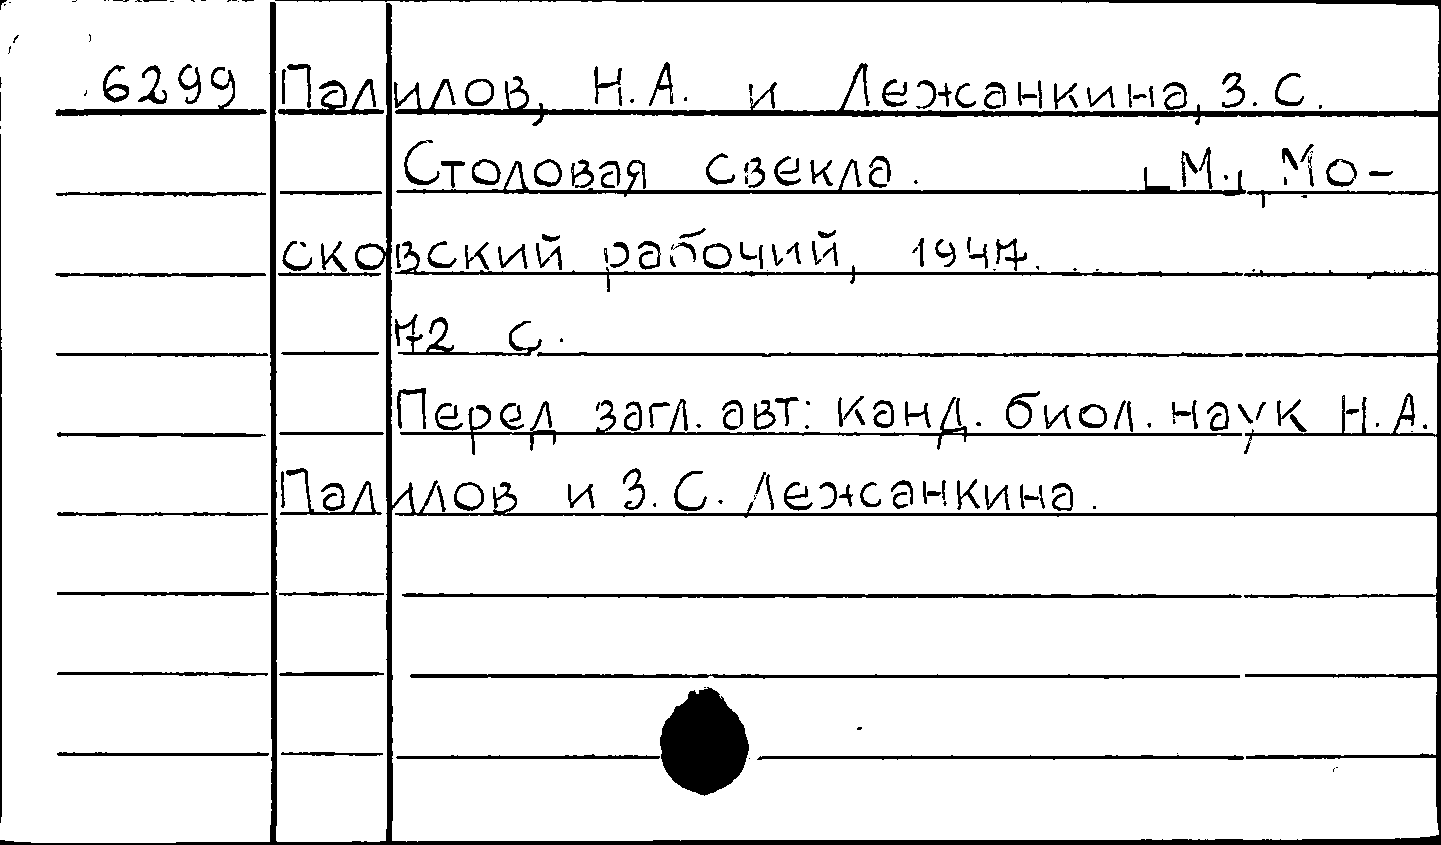 6299 Палилов, Н.А. и Лежанкина, З.С.
Столовая свекла. [М.], Мо-
сковский рабочий, 1947.
72 с.
Перед загл. авт: канд. биол. наук Н.А.
Палилов и З.С. Лежанкина.